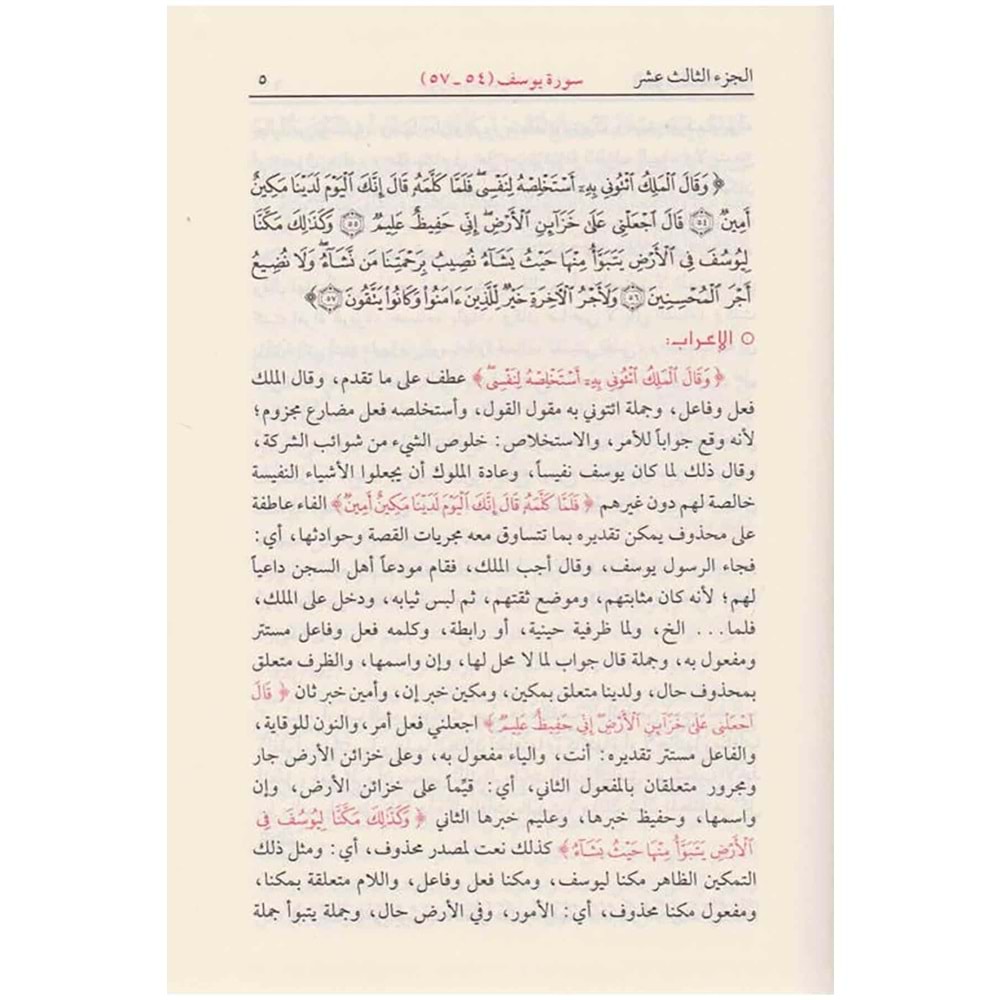 الجزء الثالث عشر سورة يوسف (٥٤ ـ ٥٧) ٥
﴿ وَقَالَ ٱلْمَلِكُ ٱئْتُونِي بِهِۦٓ أَسْتَخْلِصْهُ لِنَفْسِىۖ فَلَمَّا كَلَّمَهُۥ قَالَ إِنَّكَ ٱلْيَوْمَ لَدَيْنَا مَكِينٌ
أَمِينٌ ۝٥٤ قَالَ ٱجْعَلْنِى عَلَىٰ خَزَآئِنِ ٱلْأَرْضِۖ إِنِّى حَفِيظٌ عَلِيمٌ ۝٥٥ وَكَذَٰلِكَ مَكَّنَّا
لِيُوسُفَ فِى ٱلْأَرْضِ يَتَبَوَّأُ مِنْهَا حَيْثُ يَشَآءُ نُصِيبُ بِرَحْمَتِنَا مَن نَّشَآءُۖ وَلَا نُضِيعُ
أَجْرَ ٱلْمُحْسِنِينَ ۝٥٦ وَلَأَجْرُ ٱلْآخِرَةِ خَيْرٌ لِّلَّذِينَ ءَامَنُوا۟ وَكَانُوا۟ يَتَّقُونَ ۝٥٧﴾
○ الإعراب:
﴿ وَقَالَ ٱلْمَلِكُ ٱئْتُونِي بِهِۦٓ أَسْتَخْلِصْهُ لِنَفْسِىۖ ﴾ عطف على ما تقدم، وقال الملك
فعل وفاعل، وجملة ائتوني به مقول القول، وأستخلصه فعل مضارع مجزوم؛
لأنه وقع جواباً للأمر، والاستخلاص: خلوص الشيء من شوائب الشركة،
وقال ذلك لما كان يوسف نفيساً، وعادة الملوك أن يجعلوا الأشياء النفيسة
خالصة لهم دون غيرهم ﴿ فَلَمَّا كَلَّمَهُۥ قَالَ إِنَّكَ ٱلْيَوْمَ لَدَيْنَا مَكِينٌ أَمِينٌ ﴾ الفاء عاطفة
على محذوف يمكن تقديره بما تتساوق معه مجريات القصة وحوادثها، أي:
فجاء الرسول يوسف، وقال أجب الملك، فقام مودعاً أهل السجن داعياً
لهم؛ لأنه كان مثابتهم، وموضع ثقتهم، ثم لبس ثيابه، ودخل على الملك،
فلما... الخ، ولما ظرفية حينية، أو رابطة، وكلمه فعل وفاعل مستتر
ومفعول به، وجملة قال جواب لما لا محل لها، وإن واسمها، والظرف متعلق
بمحذوف حال، ولدينا متعلق بمكين، ومكين خبر إن، وأمين خبر ثان ﴿ قَالَ
ٱجْعَلْنِى عَلَىٰ خَزَآئِنِ ٱلْأَرْضِۖ إِنِّى حَفِيظٌ عَلِيمٌ ﴾ اجعلني فعل أمر، والنون للوقاية،
والفاعل مستتر تقديره: أنت، والياء مفعول به، وعلى خزائن الأرض جار
ومجرور متعلقان بالمفعول الثاني، أي: قيِّماً على خزائن الأرض، وإن
واسمها، وحفيظ خبرها، وعليم خبرها الثاني ﴿ وَكَذَٰلِكَ مَكَّنَّا لِيُوسُفَ فِى
ٱلْأَرْضِ يَتَبَوَّأُ مِنْهَا حَيْثُ يَشَآءُ ﴾ كذلك نعت لمصدر محذوف، أي: ومثل ذلك
التمكين الظاهر مكنا ليوسف، ومكنا فعل وفاعل، واللام متعلقة بمكنا،
ومفعول مكنا محذوف، أي: الأمور، وفي الأرض حال، وجملة يتبوأ جملة